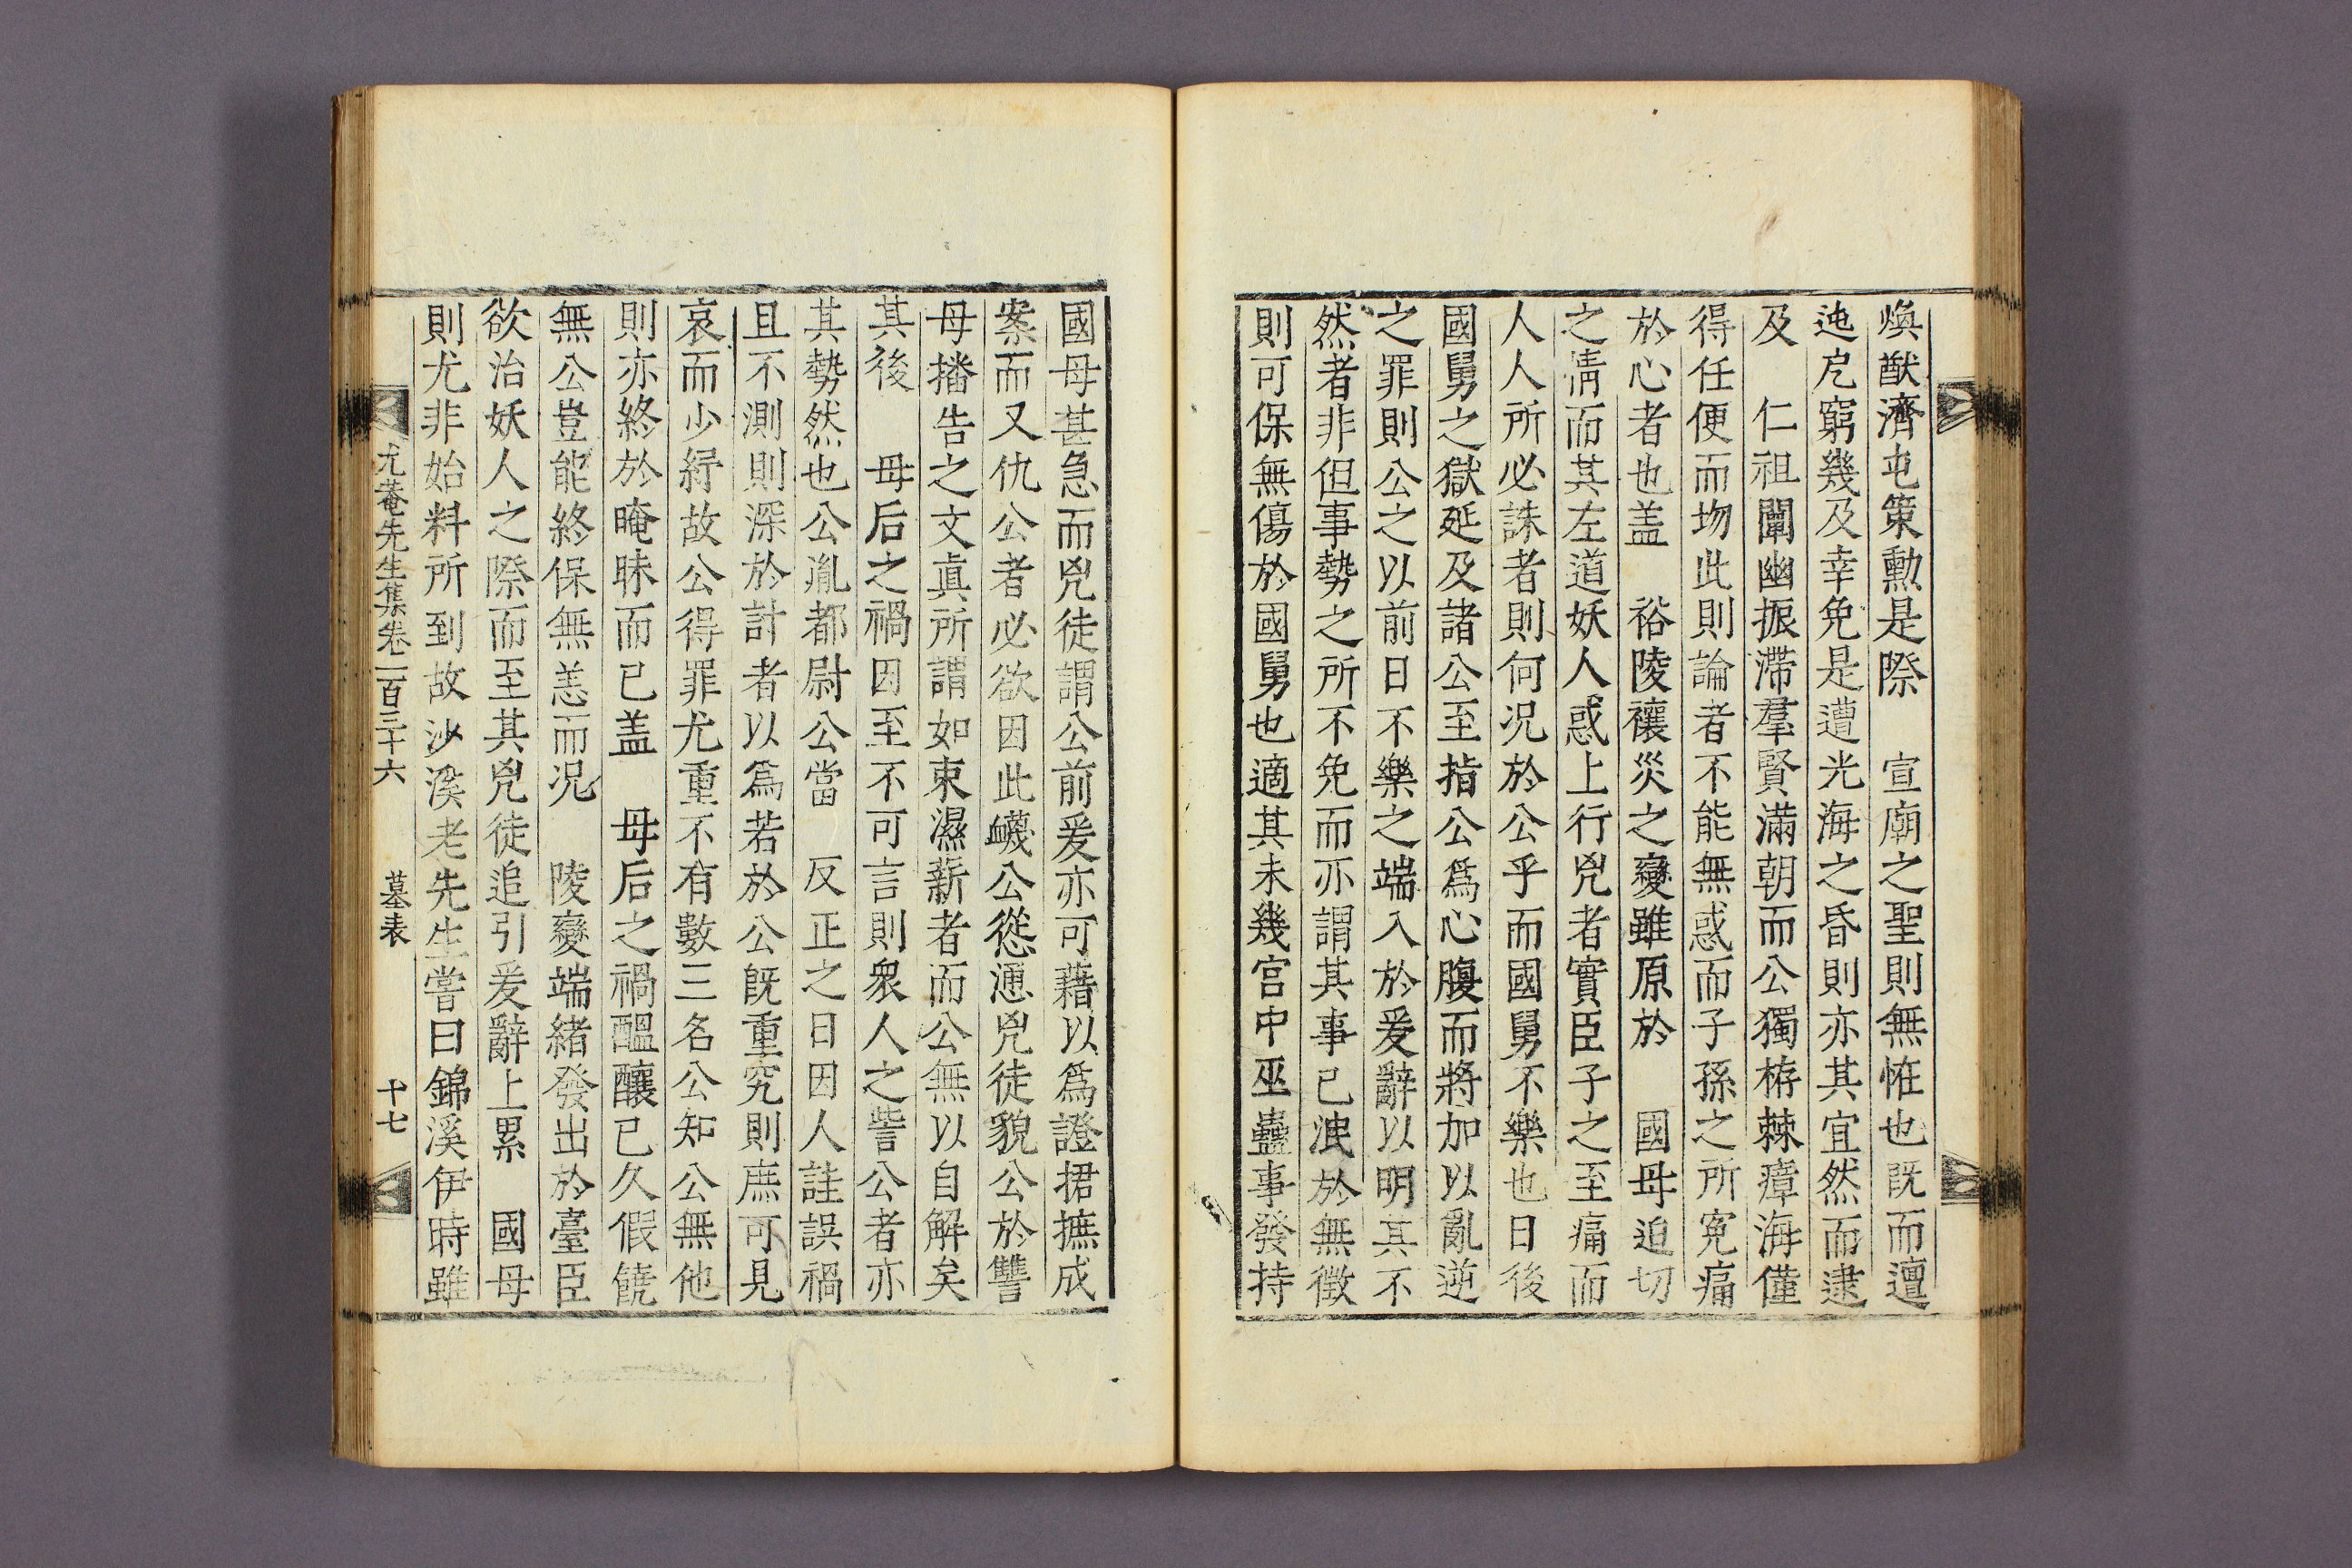 煥猷濟屯策勳是際　宣廟之聖則無怍也旣而邅
迍戹窮幾及幸免是遭光海之昏則亦其宜然而逮
及　仁祖闡幽振滯羣賢滿朝而公獨栫棘瘴海僅
得任便而歾此則論者不能無惑而子孫之所冤痛
於心者也盖　裕陵禳災之變雖原於　國母迫切
之情而其左道妖人惑上行兇者實臣子之至痛而
人人所必誅者則何况於公乎而國舅不樂也日後
國舅之獄延及諸公至指公爲心腹而將加以亂逆
之罪則公之以前日不樂之端入於爰辭以明其不
然者非但事勢之所不免而亦謂其事已洩於無徵
則可保無傷於國舅也適其未幾宮中巫蠱事發持
國母甚急而兇徒謂公前爰亦可藉以爲證捃摭成
案而又仇公者必欲因此衊公慫慂兇徒貌公於讐
母播告之文眞所謂如束濕薪者而公無以自解矣
其後　母后之禍因至不可言則衆人之訾公者亦
其勢然也公胤都尉公當　反正之日因人詿誤禍
且不測則深於計者以爲若於公旣重究則庶可見
哀而少紓故公得罪尤重不有數三名公知公無他
則亦終於晻昧而已盖　母后之禍醞釀已久假饒
無公豈能終保無恙而况　陵變端緖發出於臺臣
欲治妖人之際而至其兇徒追引爰辭上累　國母
則尤非始料所到故沙溪老先生嘗曰錦溪伊時雖
尤菴先生集卷一百三十六　墓表　十七